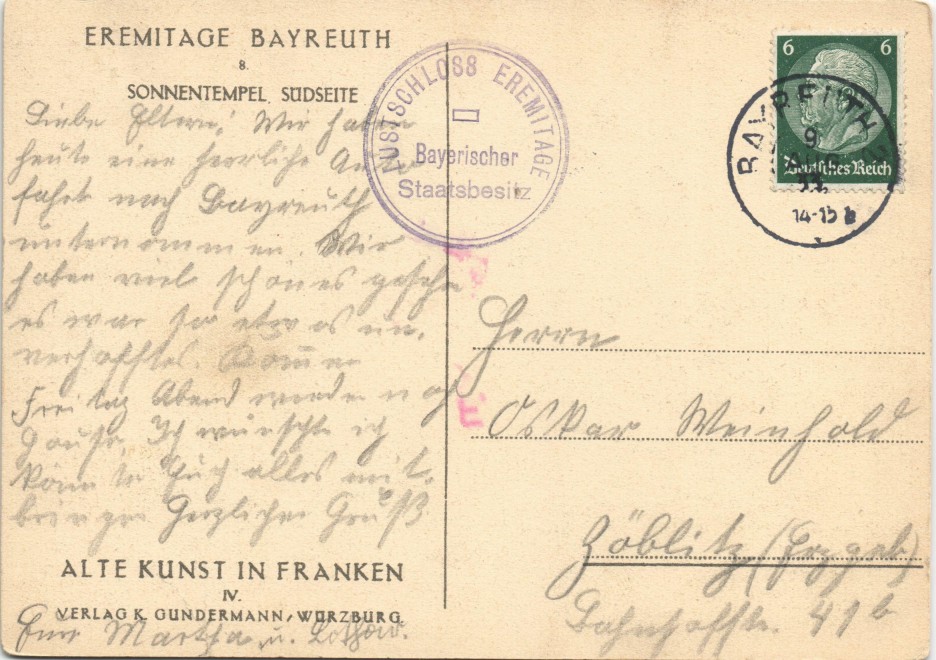 EREMITAGE BAYREUTH
8.
SONNENTEMPEL, SÜDSEITE
Liebe Eltern! Wir haben
heute eine herrliche Auto
fahrt nach Bayreuth
unternommen. Wir
haben viel schönes gesehen
es war so etwas un-
verhofftes. Kommen
Freitag Abend wieder nach
Hause. Ich wünschte ich
könnte Euch alles mit-
bringen Herzlichen Gruß
ALTE KUNST IN FRANKEN
IV.
VERLAG K. GUNDERMANN, WÜRZBURG
Eure Martha u.
LUSTSCHLOSS EREMITAGE
Bayerischer
Staatsbesitz
6 6
Deutsches Reich
BAYREUTH 2
9
14-15
Herrn
Oskar Weinhold
Zöblitz (Erzgeb)
Bahnhofstr. 41b